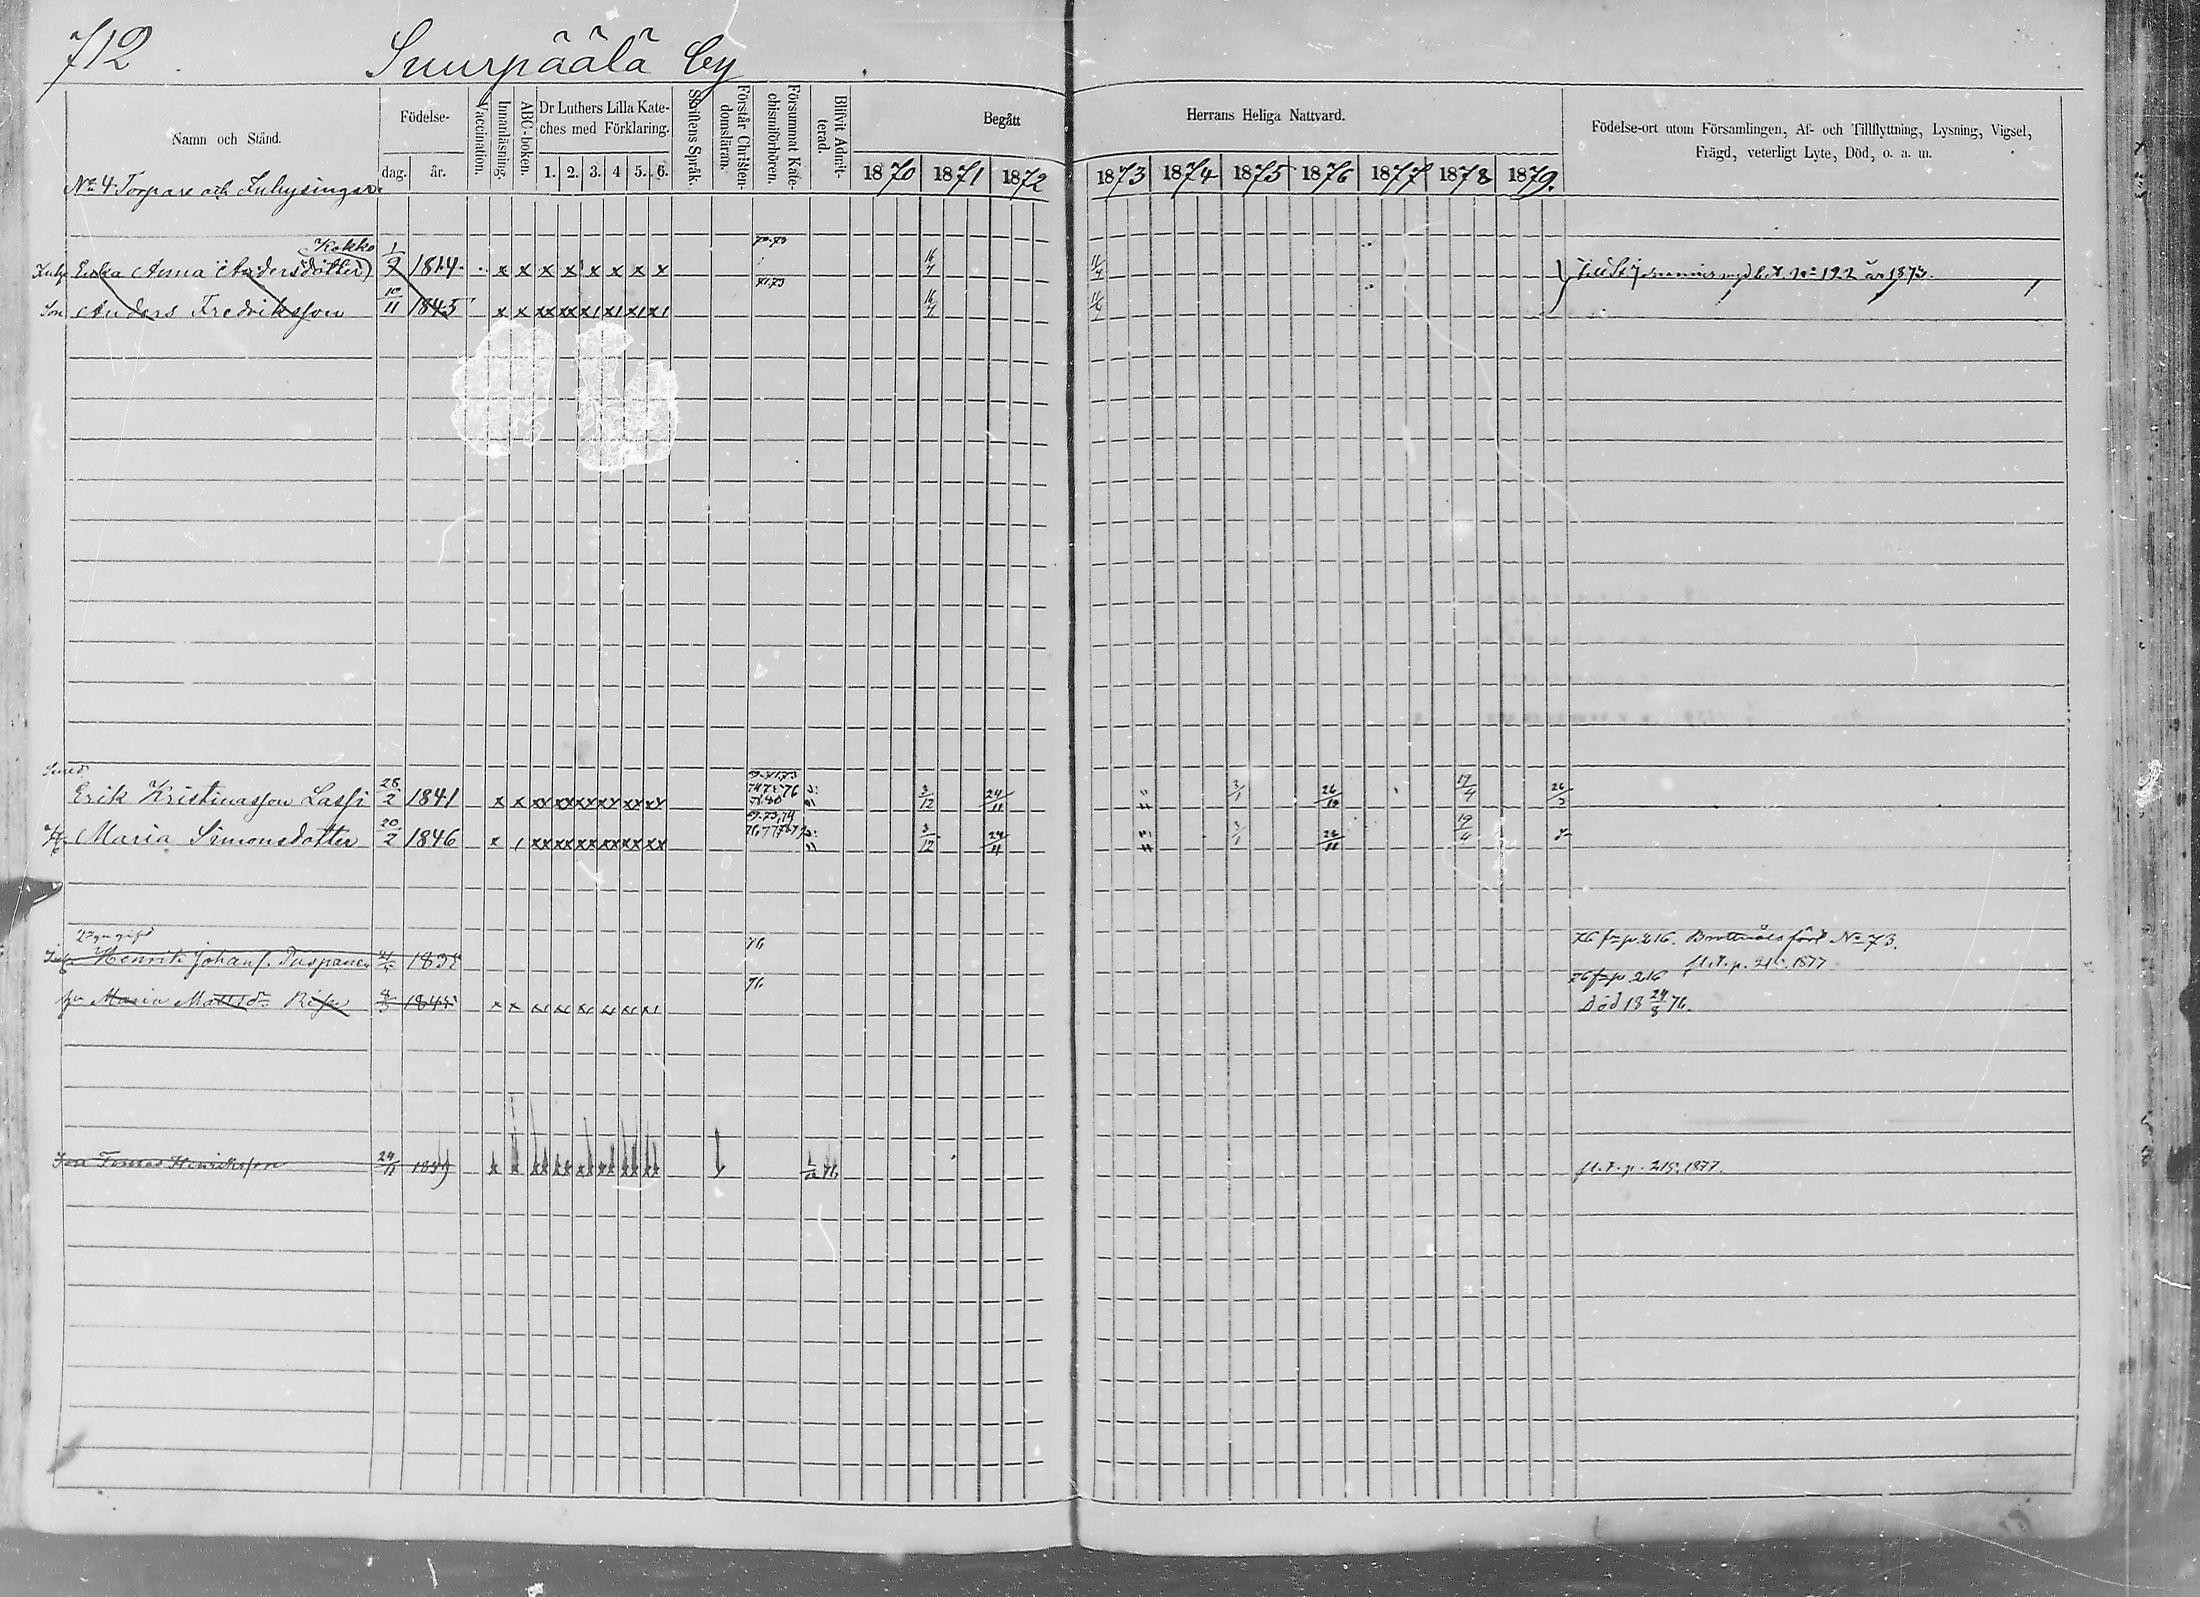 712
Suurpäälä by
Namn och Stånd.
Födelse-
dag. år.
Vaccination.
Innanläsning.
ABC-boken.
Dr Luthers Lilla Kate-
ches med Förklaring.
1. 2. 3. 4 5. 6.
Skriftens Språk.
Förstår Christen-
domsläran.
Försummat Kate-
chismiförhören.
Blifvit Admit-
terad.
Begått
Herrans Heliga Nattvard.
1870 1871 1872 1873 1874 1875 1876 1877 1878 1879.
Födelse-ort utom Församlingen, Af- och Tillflyttning, Lysning, Vigsel,
Frägd, veterligt Lyte, Död, o. a. m.
No 4. Torpare och Inhysingar.
Kokko
Inhys Enka Anna (Andersdotter) 1/9 1814 x x x x x x x x 16/4 11/4
Son Anders Fredriksson 10/11 1845 x x xx xx x1 x1 x1 x1 16/4 11/4
Till St Joannis med bet. No 192 år 1873.
Smed
Erik Kristinasson Lassi 28/2 1841 x x xx xx xx xx xx xx 3/12 24/11 3/1 26/10 19/4 26/3
H. Maria Simonsdotter 20/2 1846 x / xx xx xx xx xx xx 3/12 24/11 3/1 26/11 19/4
2 ggr gift
Henrik Johans. Puspanen 1835 76
76 fr p 216. Brottmåls förd No 73.
fl. t. p. 215. 1877
hu Maria Mattsd. 1845 76 x x
76 fr p 216
Död 18 24/3 76.
Son Tomas Henriksson 24/11 1859 76
fl. t. p. 215. 1877.